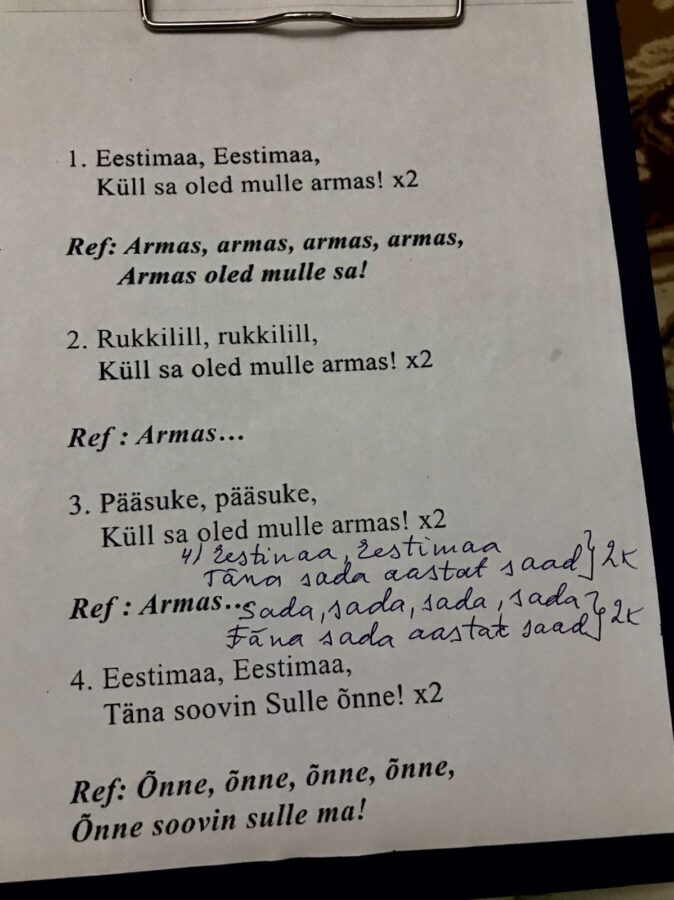 1. Eestimaa, Eestimaa,
Küll sa oled mulle armas! x2
Ref: Armas, armas, armas, armas,
Armas oled mulle sa!
2. Rukkilill, rukkilill,
Küll sa oled mulle armas! x2
Ref : Armas...
3. Pääsuke, pääsuke,
Küll sa oled mulle armas! x2
4) Eestimaa, Eestimaa
Täna sada aastat saad } 2k
Ref : Armas...
Sada, sada, sada, sada
Täna sada aastat saad } 2k
4. Eestimaa, Eestimaa,
Täna soovin Sulle õnne! x2
Ref: Õnne, õnne, õnne, õnne,
Õnne soovin sulle ma!